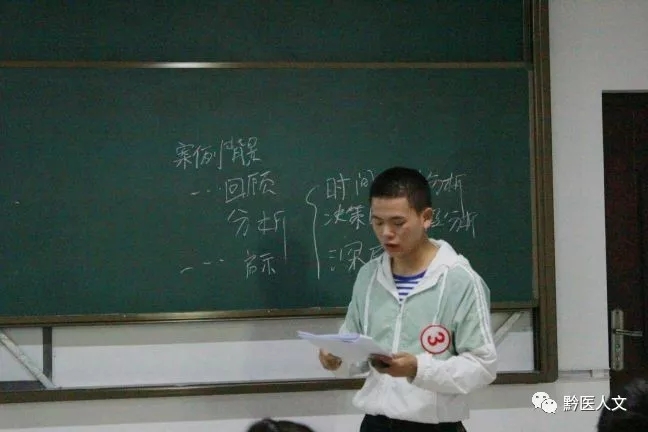 案例背景
…回顾 时间 分析
分析 决策 分析
… 启示 深
3
黔医人文